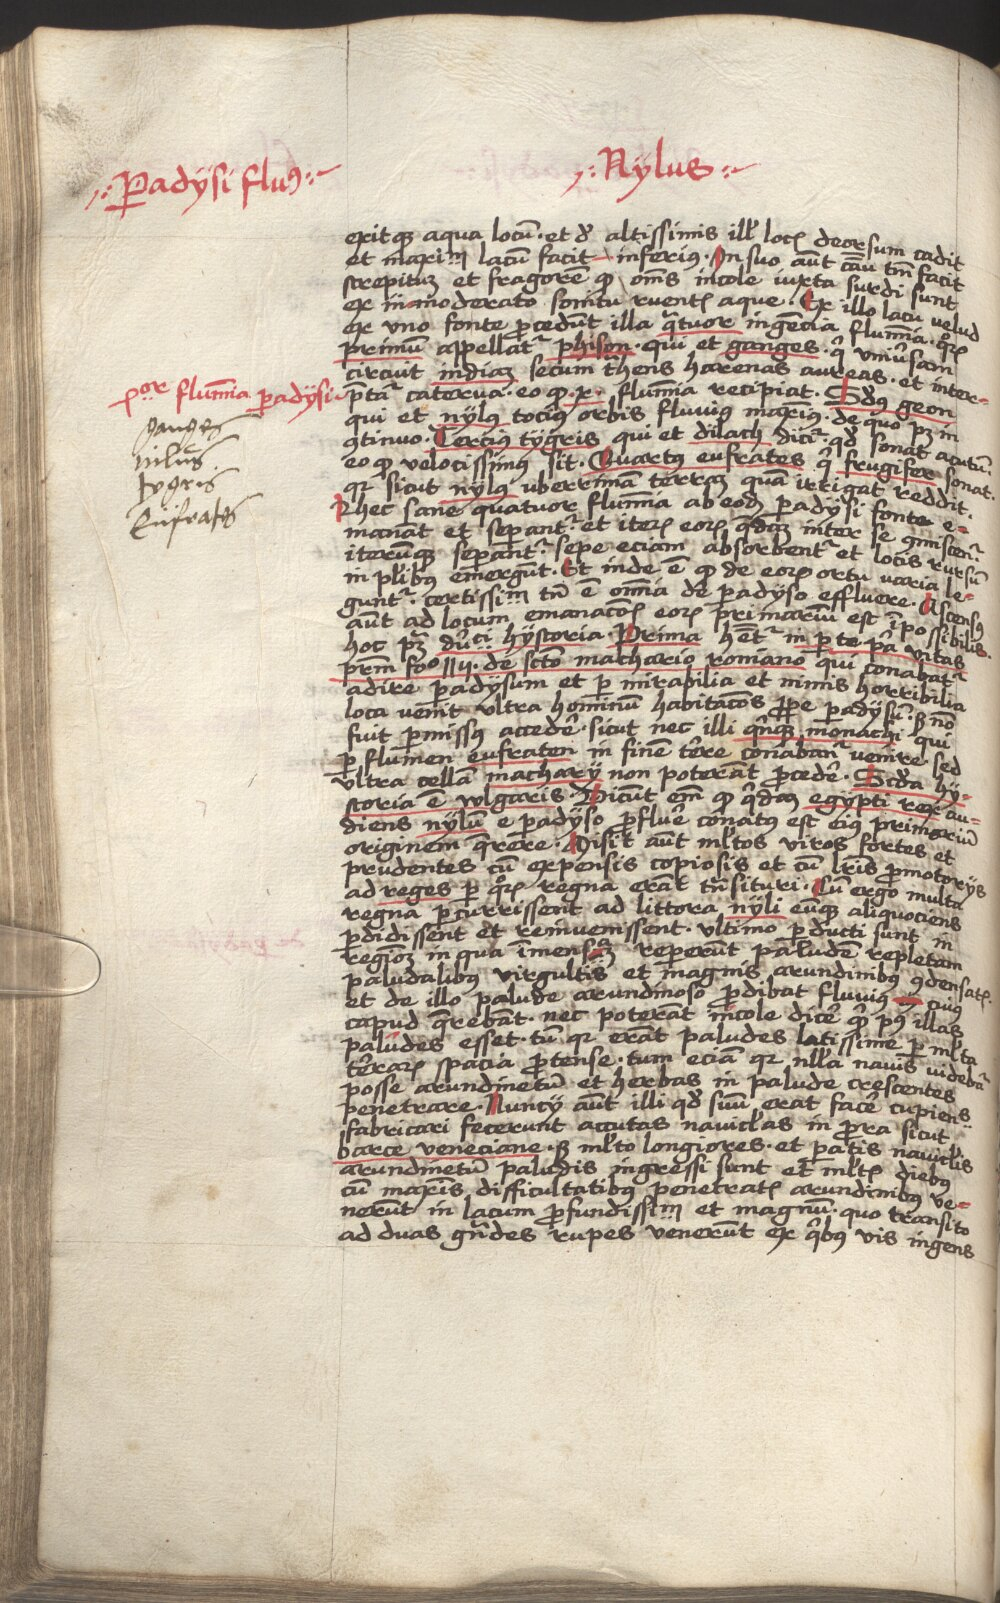 Padÿsi fluꝰ
Nÿlus
exitqꝫ aqua locū · et d' altissimis ill' locꝭ deorsum cadit
et maxiꝫ lacū facit inferiꝰ · In suo aūt cāu tm̄ facit
strepituꝫ et fragorē ꝙ om̄s incole iuxta surdi sunt
ex inmoderato sonitu ruentꝭ aque · Ex illo lacu velud
ex vno fonte ꝓcedūt illa q̄tuor ingēcia flumīa · qͦꝝ
primū appellatᷣ phison · qui et ganges · qͥ vniūsam
circuit indiaꝫ secum t̄hens harenas aureas · et inter-
p̄tatᷣ caterua · eo ꝙ · x · flumīa recipiat · Scdꝰ geon
qui et nÿlꝰ tociꝰ orbis fluuiꝰ maxiꝰ · de quo pꝫ in
ꝯtinuo · Terciꝰ tÿgris qui et dilach dicitᷣ · qd' sonat acutū ·
eo ꝙ velocissimꝰ sit · Quartꝰ eufrates qͥ frugifer sonat ·
qr sicut nÿlꝰ vberrimā terraꝫ quā irrigat reddit ·
Rhec sane quatuor flumīa ab eodꝫ padÿsi fonte e-
manāt et sepantᷣ · et iteꝝ eoꝝ qͥdaꝫ inter se ꝯmiscentᷣ
iterūqꝫ sepantᷣ · sepe eciam absorbentᷣ et locis rursū
in pl'ibꝰ emergūt · Et inde ē ꝙ de eoꝝ ortu varia le-
guntᷣ · certissiꝫ tn̄ ē om̄ia de padÿso effluere · Ascensꝰ
aūt ad locum emanacōꝭ eoꝝ primariū est īpossibilis ·
hoc pꝫ dūci hÿstoria Prima hētᷣ in p̱te pͥa vitas
pr̄m fo° II ij · de scto machario romano qui conabatᷣ
adire padÿsum et ꝑ mirabilia et nimis horribilia
loca venit vltra hominū habitacōꝭ ꝓpe padÿsū · ꝫ nō
fuit ꝑmissꝰ accedē · sicut nec illi qͥnqꝫ monachi qui
ꝑ flumen eufraten in finē tēre conabant' venire · sed
vltra cellā macharÿ non poterāt ꝓcedē · Scd'a hÿ-
storia ē wlgaris · Dicūt em̄ ꝙ qͥdaꝫ egÿpti rex au-
diens nÿlū e padÿso ꝓfluē conatꝰ est eiꝰ primariū
originem q̄rere · Misit aūt ml'tos viros fortes et
prudentes cū expensis copiosis et cū lr̄is ꝓmotorÿs
ad reges ꝑ qͦꝝ regna erāt tn̄situri · Cū ergo multa
regna ꝑcurrissent ad littora nÿli eūqꝫ aliquociens
ꝑdidissent et reinuenissent · vltimo ꝑducti sunt in
regiōꝫ in qua īmensaꝫ reperūt paludē repletam
paludalibꝰ virgultis et magnis arundinibꝰ ꝯdensatꝭ ·
et de illo palude arundinoso ꝓdibat fluuiꝰ cuiꝰ
capud q̄rebāt · nec poterāt incole dicē qͥ pꝰ illas
paludes esset · tū qr erāt paludes latissime ꝑ ml'ta
tēraꝝ spacia ꝓtense · tum eciā qr nll'a nauis videbatᷣ
posse arundinetū et herbas in palude crescentes
penetrare · Nuncÿ aūt illi qd' suū erat facē cupiens
fabricari fecerunt accutas nauicl'as in ꝓra sicut
barce veneciane · ꝫ ml'to longiores · et patis nauicl'is
arundinetū paludis ingressi sunt et ml'tꝭ diebꝰ
cū maxīs difficultatibꝰ penetratꝭ arundinibꝰ ve-
nerūt in lacum ꝓfundissiꝫ et magnū · quo transito
ad duas gͣndes rupes venerūt ex qͥbꝰ vis ingens
·or flumīa padÿsi
ganges
nilus
tygris
Eufrates